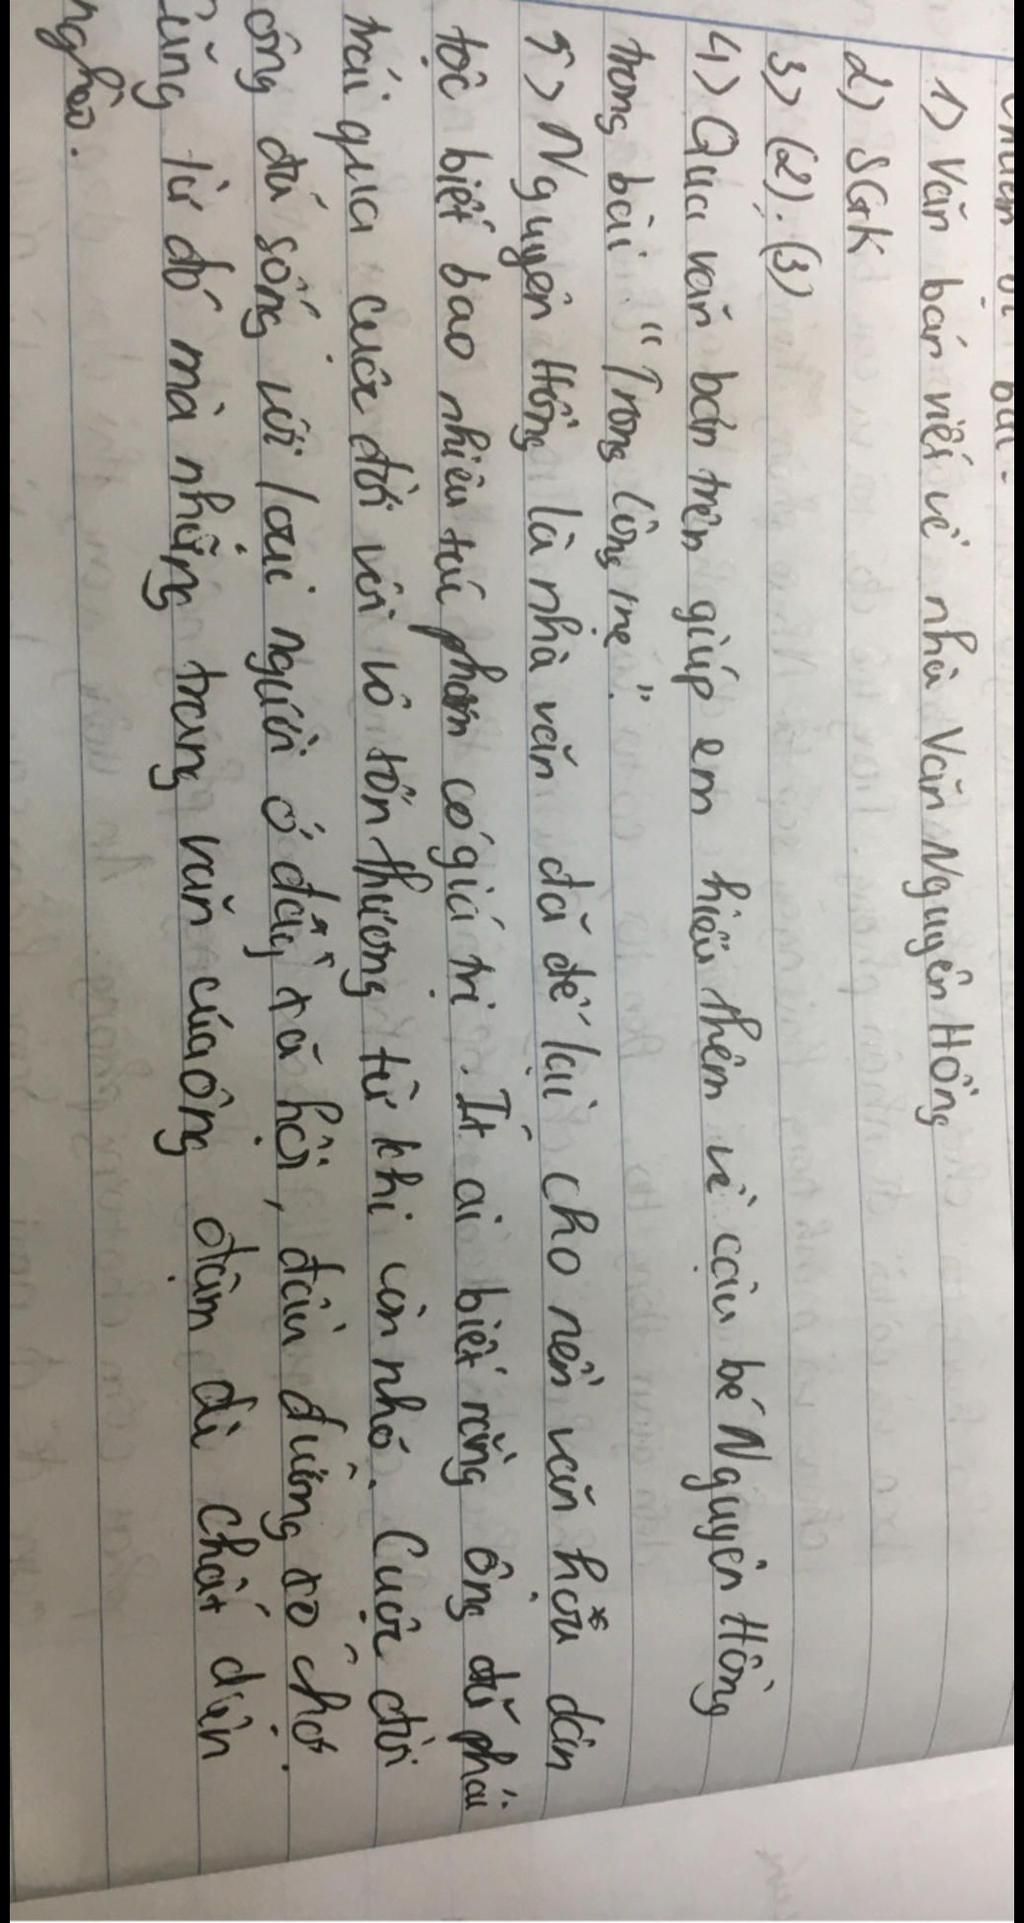 bài.
1) Văn bản viết về nhà Văn Nguyên Hồng
2) SGK
3) (2). (3)
4) Qua văn bản trên giúp em hiểu thêm về cậu bé Nguyên Hồng
trong bài "Trong lòng mẹ".
5) Nguyên Hồng là nhà văn đã để lại cho nền văn hoá dân
tộc biết bao nhiêu tác phẩm có giá trị. Ít ai biết rằng ông đã phải
trải qua cuộc đời với vô tổn thương từ khi còn nhỏ. Cuộc đời
ông đã sống với loại người ở đáy xã hội, đầu đường xó chợ.
Cũng từ đó mà những trang văn của ông đậm đà chất dân
nghèo.